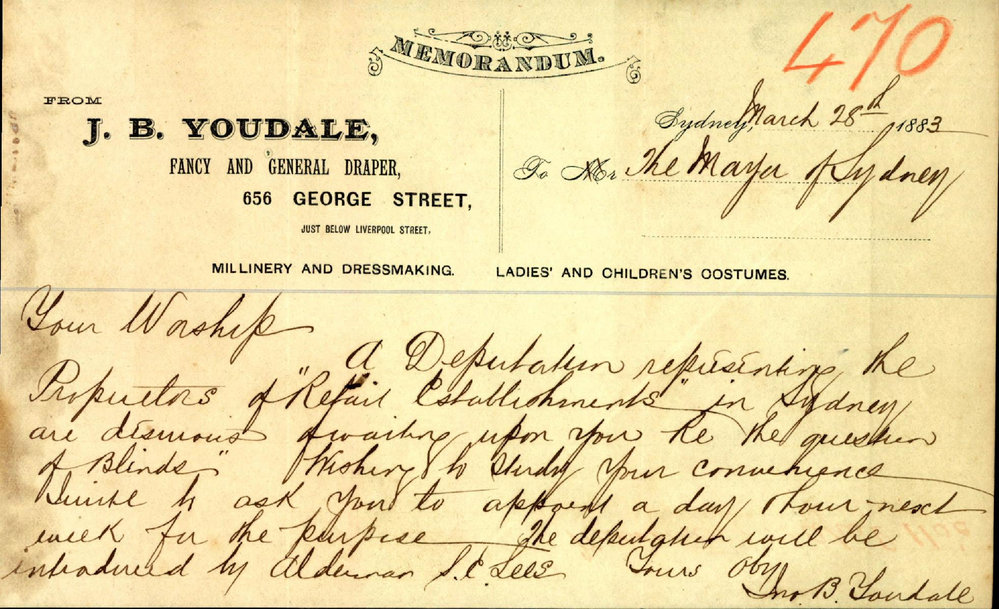 MEMORANDUM.
470
FROM
J. B. YOUDALE,
FANCY AND GENERAL DRAPER,
656 GEORGE STREET,
JUST BELOW LIVERPOOL STREET.
Sydney, March 28th 1883
To Mr The Mayor of Sydney
MILLINERY AND DRESSMAKING. LADIES' AND CHILDREN'S COSTUMES.
Your Worship
A Deputation representing the
Proprietors of "Retail Establishments" in Sydney
are desirous of waiting upon you Re the question
of Blinds" Wishing to study your convenience
I write to ask you to appoint a day & hour next
week for the purpose The deputation will be
introduced by Alderman S. C. Lees Yours Oby
Jno B. Youdale